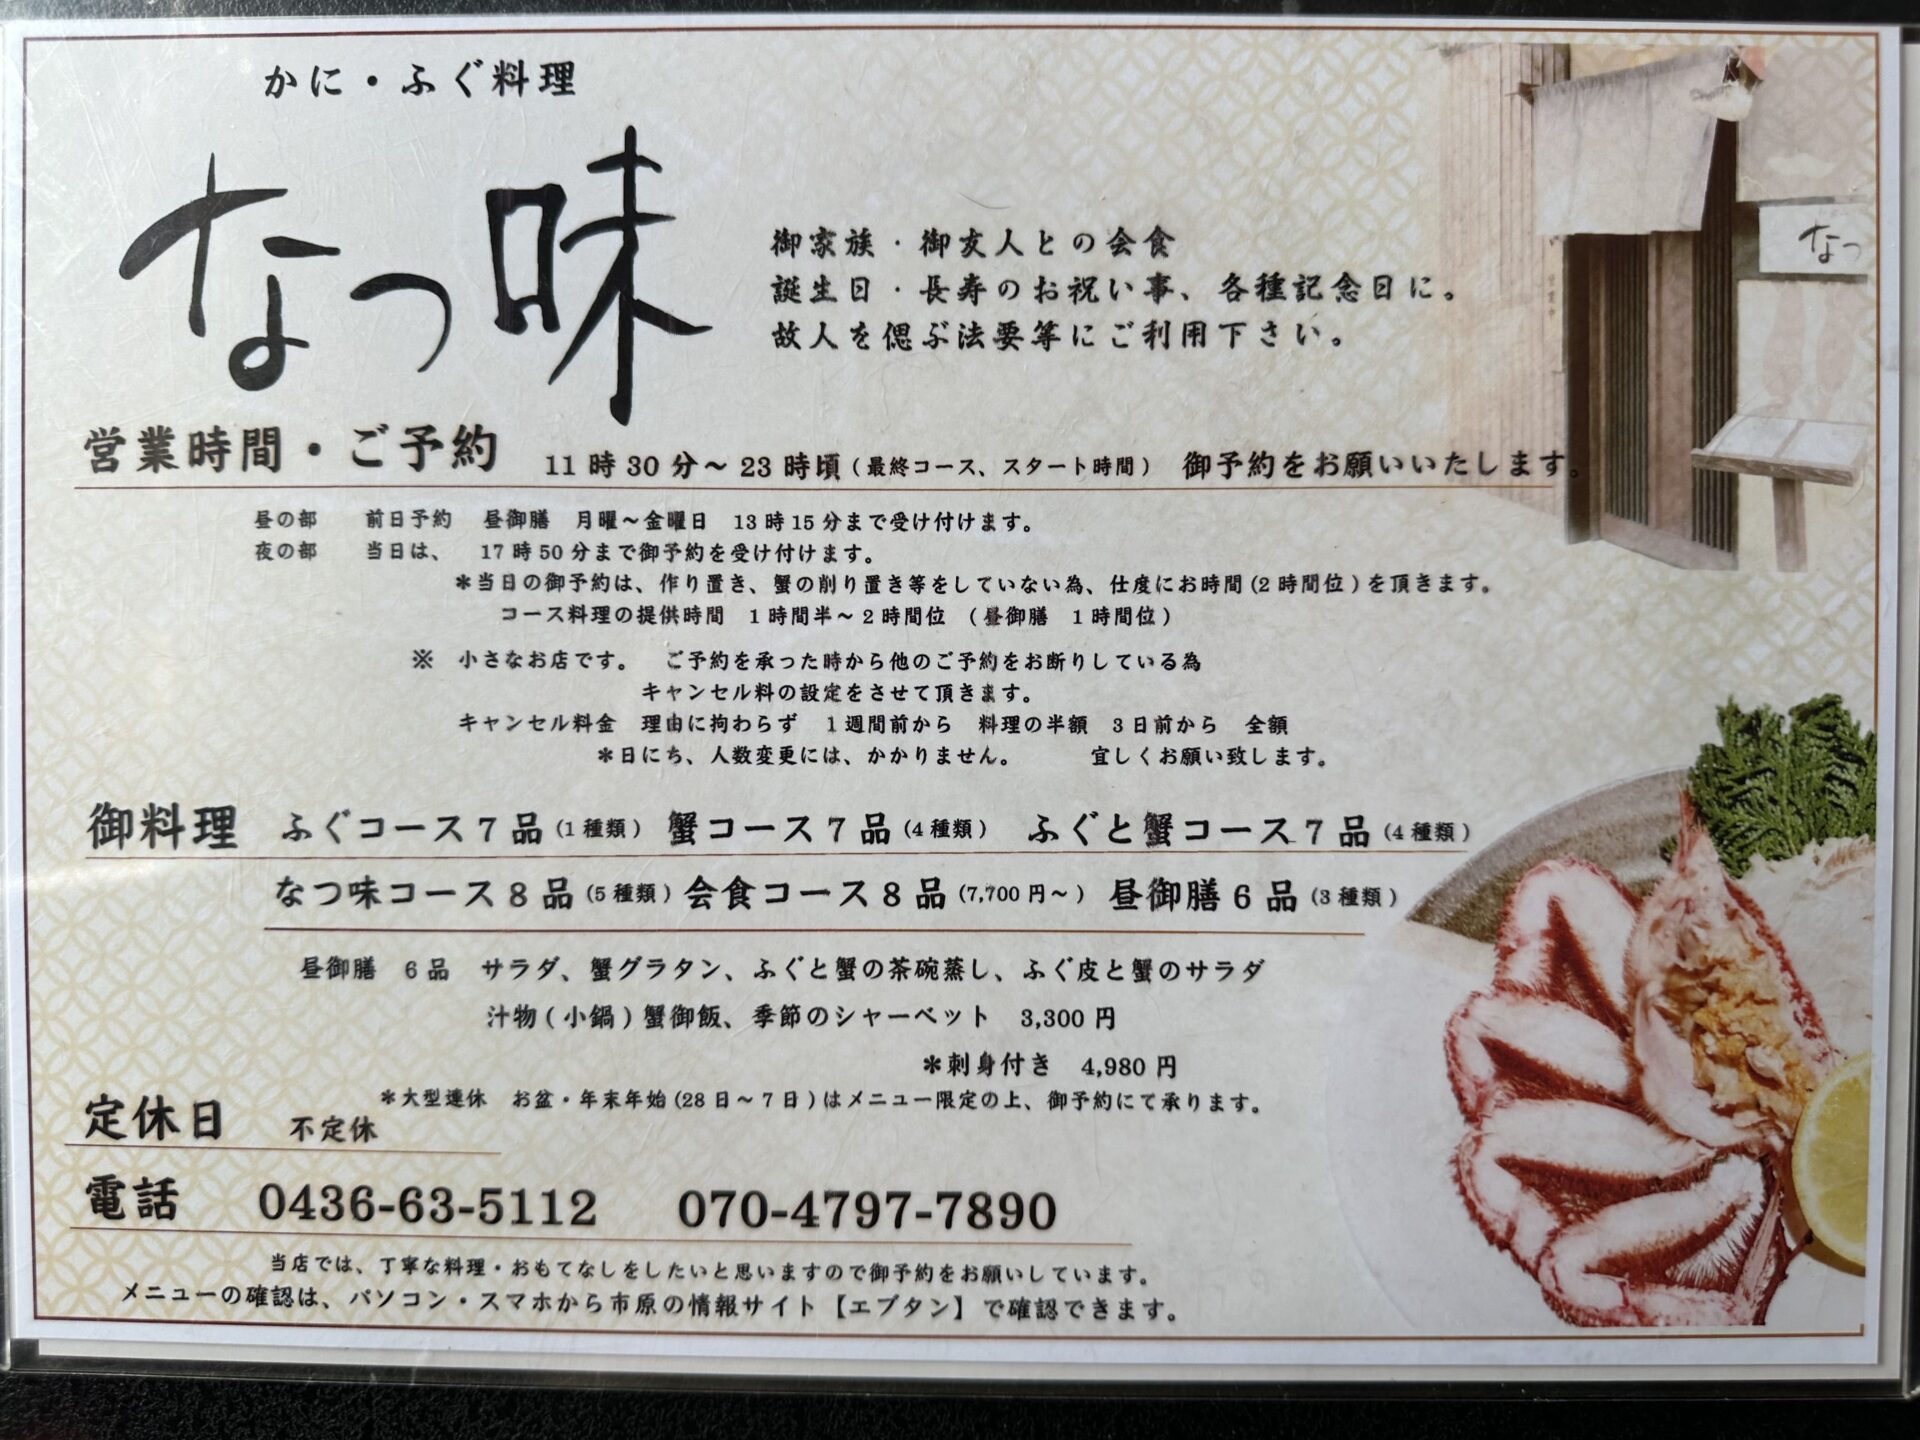 かに・ふぐ料理
なつ味
なつ
御家族・御友人との会食
誕生日・長寿のお祝い事、各種記念日に。
故人を偲ぶ法要等にご利用下さい。
営業時間・ご予約 11時30分～23時頃(最終コース、スタート時間) 御予約をお願いいたします。
昼の部 前日予約 昼御膳 月曜～金曜日 13時15分まで受け付けます。
夜の部 当日は、 17時50分まで御予約を受け付けます。
＊当日の御予約は、作り置き、蟹の削り置き等をしていない為、仕度にお時間(2時間位)を頂きます。
コース料理の提供時間 1時間半～2時間位 (昼御膳 1時間位)
※ 小さなお店です。 ご予約を承った時から他のご予約をお断りしている為
キャンセル料の設定をさせて頂きます。
キャンセル料金 理由に拘わらず 1週間前から 料理の半額 3日前から 全額
＊日にち、人数変更には、かかりません。 宜しくお願い致します。
御料理 ふぐコース7品(1種類) 蟹コース7品(4種類) ふぐと蟹コース7品(4種類)
なつ味コース8品(5種類) 会食コース8品(7,700円～) 昼御膳6品(3種類)
昼御膳 6品 サラダ、蟹グラタン、ふぐと蟹の茶碗蒸し、ふぐ皮と蟹のサラダ
汁物(小鍋)蟹御飯、季節のシャーベット 3,300円
＊刺身付き 4,980円
＊大型連休 お盆・年末年始(28日～7日)はメニュー限定の上、御予約にて承ります。
定休日 不定休
電話 0436-63-5112 070-4797-7890
当店では、丁寧な料理・おもてなしをしたいと思いますので御予約をお願いしています。
メニューの確認は、パソコン・スマホから市原の情報サイト【エブタン】で確認できます。